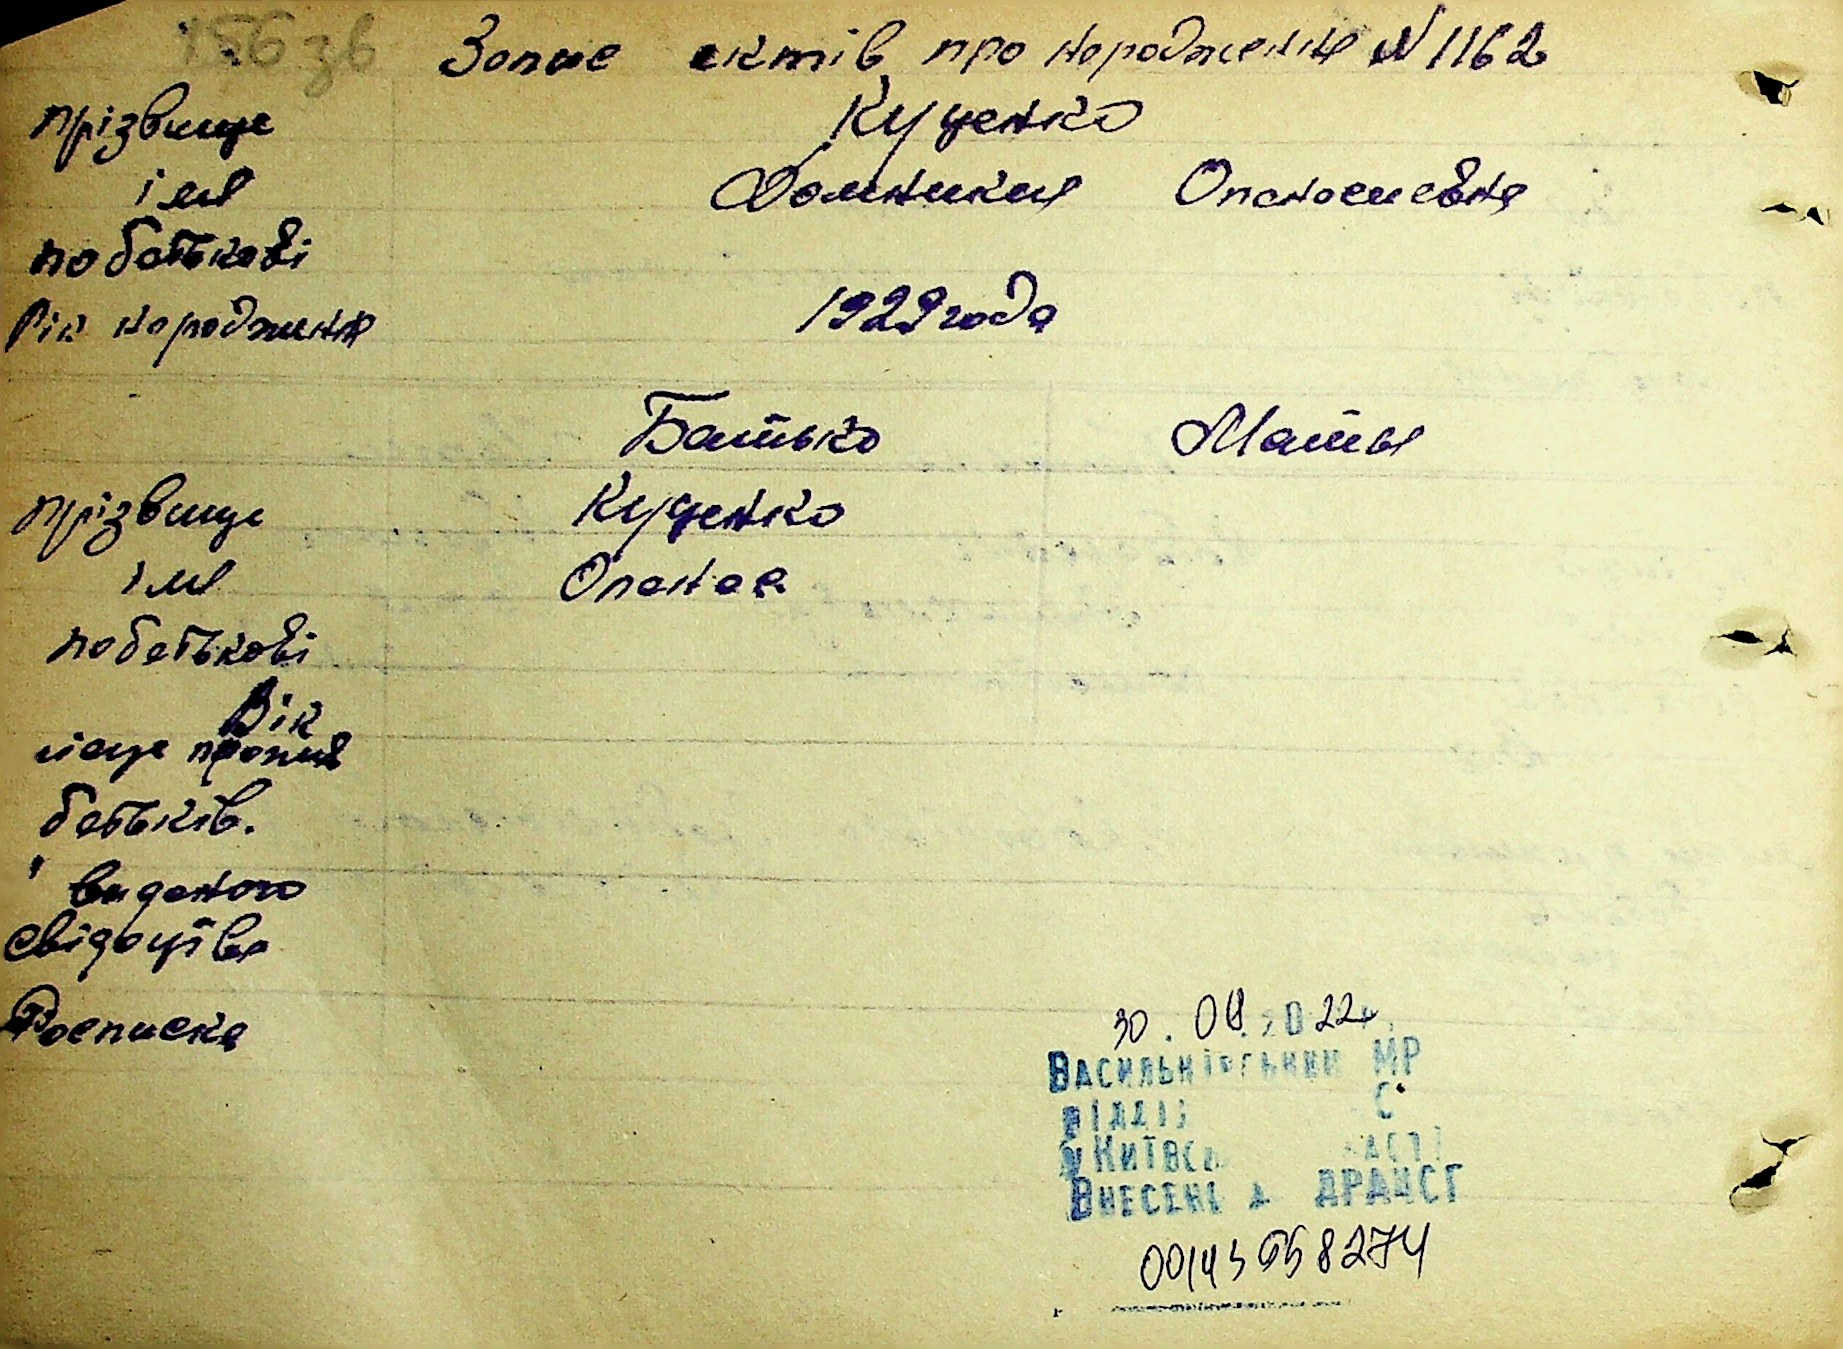 156 зв
Запис актів про народження № 1162
прізвище Куценко
імя Домникия Опанасиевна
по батькові
Рік народження 1929 года
Батько Маты
прізвище Куценко
імя Опанас
по батькові
Вік
місце прожив
батьків.
виданого
свідоцтва
Росписка
30. 08. 2022
Васильківський МР
відділ С
у Київс аст
Внесено д ДРАЦСГ